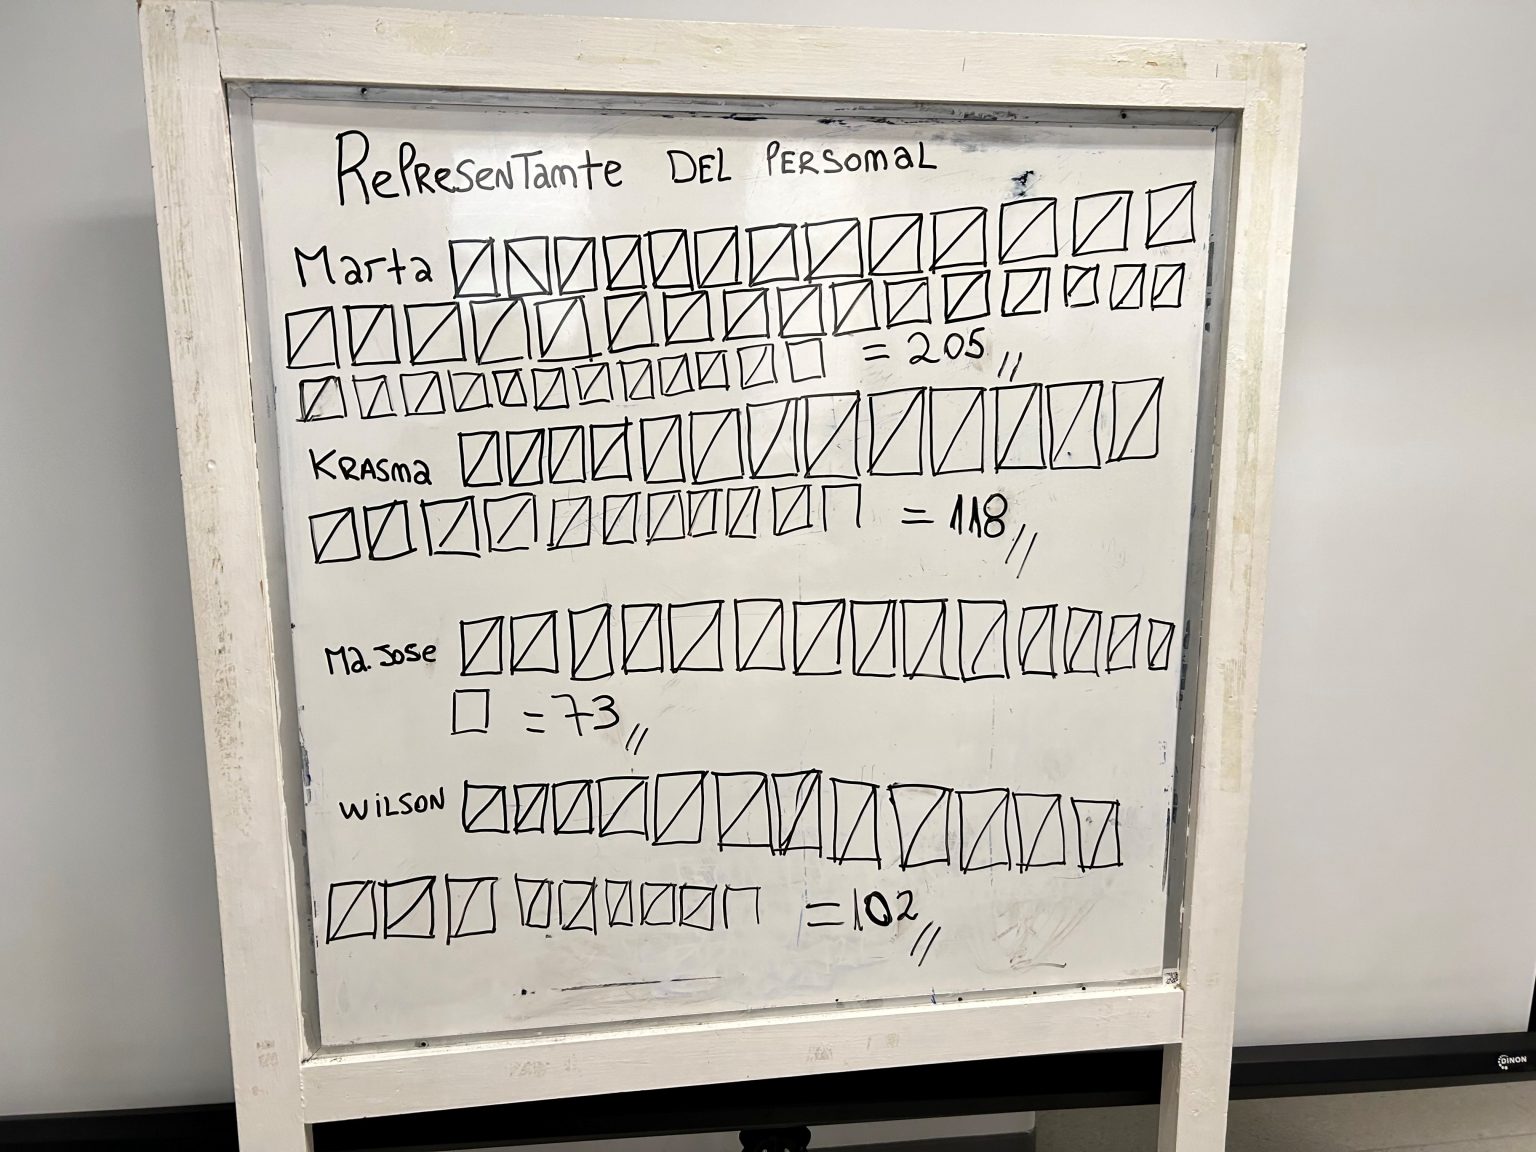 Representante DEL PERSONAL
Marta
= 205
KRASMA
= 118
Ma. JOSE
= 73
WILSON
= 102
DINON